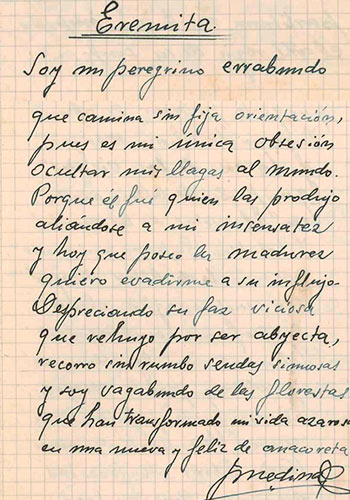 Eremita.
Soy un peregrino errabundo
que camina sin fija orientación,
pues es mi única obsesión
ocultar mis llagas al mundo.
Porque él fué quien las produjo
aliándose a mi insensatez
y hoy que poseo la madurez
quiero evadirme a su influjo.
Despreciando su faz viciosa
que rehuyo por ser abyecta,
recorro sin rumbo sendas sinuosas
y soy vagabundo de las florestas
que han transformado mi vida azarosa
en una nueva y feliz de anacoreta